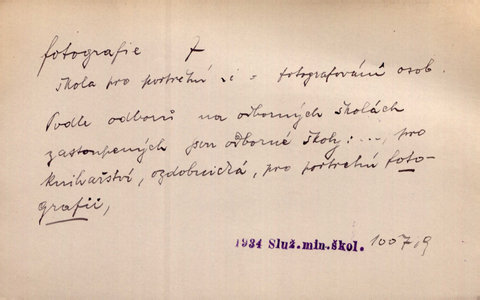 fotografie 7
škola pro portrétní fotografování osob.
Podle odborů na odborných školách
zastoupených jsou odborné školy: ..., pro
knihařství, ozdobnická, pro portretní foto-
grafii,
1934 Služ.min.škol. 1007,9